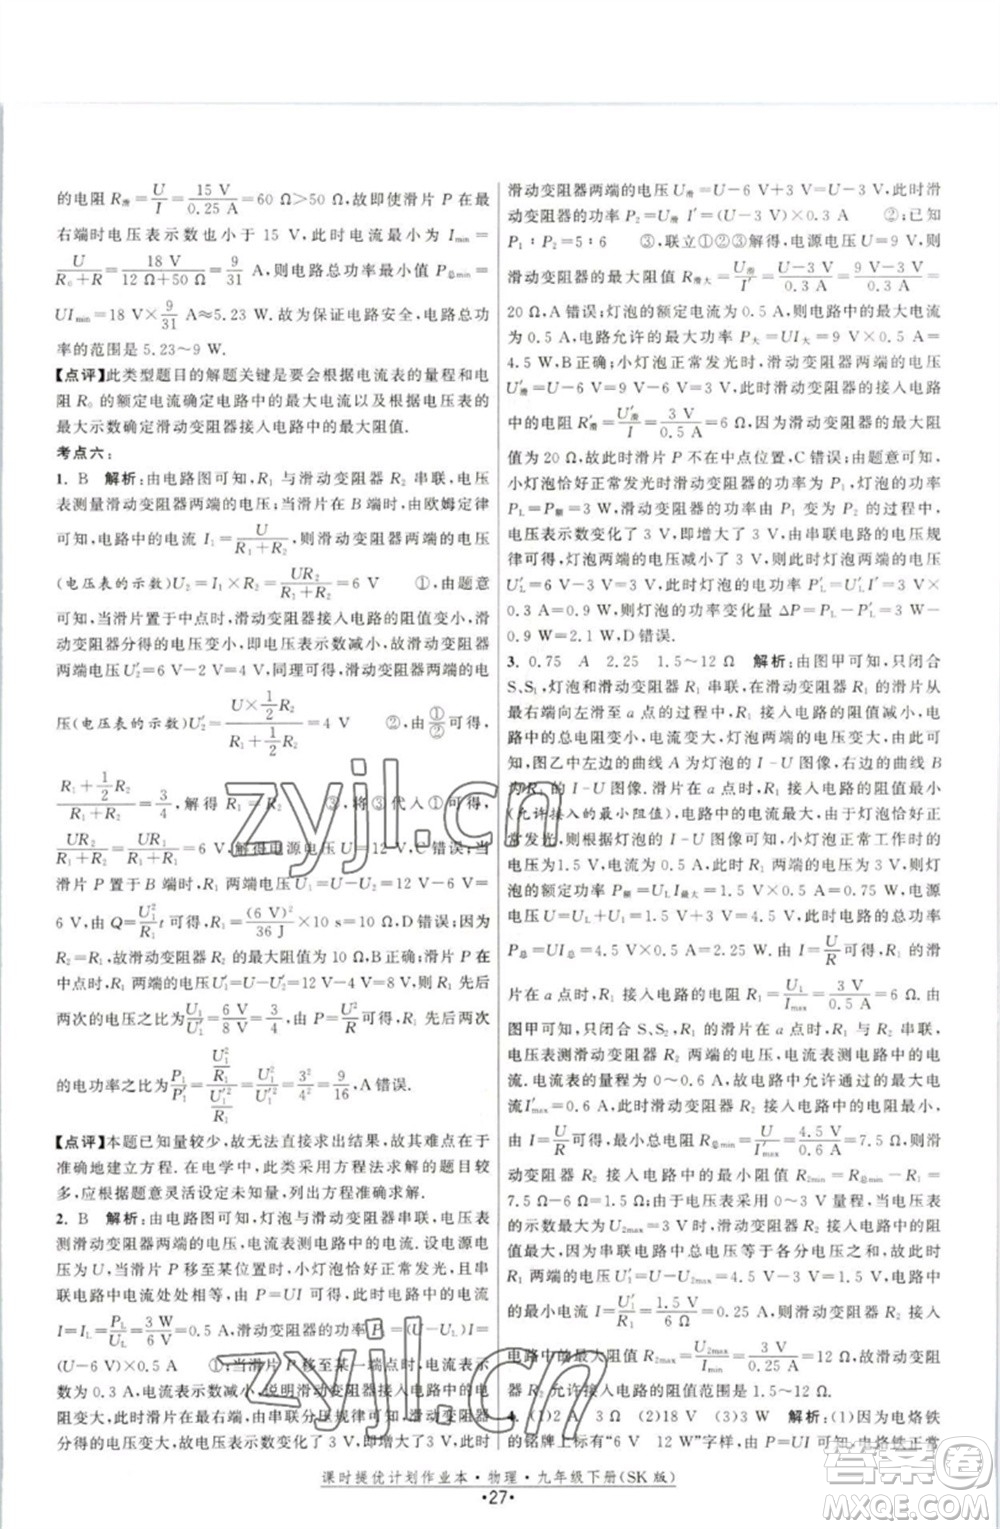 的电阻 R滑=U/I=15 V/0.25 A=60 Ω>50 Ω,故此时滑片 P 在最
右端时电压表示数也小于 15 V,此时电流最小 Imin=
U/(R₀+R)=18 V/(12 Ω+50 Ω)=9/31 A,则电路总功率最小值 P总min=
UImin=18 V×9/31 A≈5.23 W.故为保证电路安全,电路总功
率的范围是 5.23~9 W.
【点评】此类型题目的解题关键是要会根据电流表的量程和电
阻 R₀ 的额定电流确定电路中的最大电流以及根据电压表的
最大示数确定滑动变阻器接入电路中的最大阻值.
考点六:
1. B 解析:由电路图可知,R₁ 与滑动变阻器 R₂ 串联,电压
表测量滑动变阻器两端的电压;当滑片在 B 端,由欧姆定律
可知,电路中的电流 I₁=U/(R₁+R₂),则滑动变阻器两端的电压
(电压表的示数)U₂=I₁×R₂=UR₂/(R₁+R₂)=6 V ①,由题意
可知,当滑片置于中点时,滑动变阻器接入电路的阻值变小,滑
动变阻器分得的电压变小,即电压表示数减小,故滑动变阻器
两端电压 U₂′=6 V-2 V=4 V,同理可得,滑动变阻器两端的电
压(电压表的示数)U₂′=(U×1/2R₂)/(R₁+1/2R₂)=4 V ②,由①/②可得,
(R₁+1/2R₂)/(R₁+R₂)=3/4,解得 R₁=R₂ ③,将③代入①可得,
UR₂/(R₁+R₂)=UR₁/(R₁+R₁)=6 V,解得电源电压 U=12 V,C 错误;当
滑片 P 在 B 端时,R₁ 两端电压 U₁=U-U₂=12 V-6 V=
6 V,由 Q=U₁²/R₁t 可得,R₁=(6 V)²/36 J×10 s=10 Ω,D 错误;因为
R₂=R₁,所以滑动变阻器的最大阻值为 10 Ω,B 正确;滑片 P 在
中点时,R₁ 两端的电压 U₁′=U-U₂′=12 V-4 V=8 V,先后
两次的电压之比为U₁/U₁′=6 V/8 V=3/4,由 P=U²/R可得,R₁ 先后两次
的电功率之比为P₁/P₁′=(U₁²/R₁)/(U₁′²/R₁)=U₁²/U₁′²=3²/4²=9/16,A 错误.
【点评】本题已知量较少,故无法直接求出结果,故要求学生能
准确地建立方程.在电学中,此类利用方程求法求解的题目较
多,应根据题意灵活设定未知量,列出方程准确求解.
2. B 解析:由电路图可知,灯泡与滑动变阻器串联,电压表
测滑动变阻器两端的电压,电流表测电路中的电流.设电源电
压为 U,当滑片 P 移至某位置时,小灯泡恰好正常发光,且串
联电路中电流处处相等,由 P=UI 可得,此时电路中的电流
I=IL=PL/UL=3 W/6 V=0.5 A,滑动变阻器的功率 P₁=(U-UL)I=
(U-6 V)×0.5 A ①;当滑片 P 移至某一端点时,电流表示
数为 0.3 A,电流表示数减小,说明滑动变阻器接入电路的阻值
变大,根据串联分压规律可知,滑动变阻器两端的电压变大,
分得的电压变大,故此时电压表的示数变大,电压变大,此时
滑动变阻器两端的电压 U滑=U-6 V+3 V=U-3 V,此时滑
动变阻器的功率 P₂=U滑 I′=(U-3 V)×0.3 A ②;已知
P₁:P₂=5:6 ③,联立①②③解得,电源电压 U=9 V,则
滑动变阻器的最大阻值 R滑大=U滑/I′=(U-3 V)/0.3 A=(9 V-3 V)/0.3 A=
20 Ω,A 错误;灯泡的额定电流为 0.5 A,则电路中的最大电流
为 0.5 A,电路允许的最大功率 P大=UI大=9 V×0.5 A=
4.5 W,B 正确;小灯泡正常发光时,滑动变阻器两端的电压
U滑′=U-6 V=9 V-6 V=3 V,此时滑动变阻器接入电路
中的电阻 R滑′=U滑′/I=3 V/0.5 A=6 Ω,因为滑动变阻器的最大阻
值为 20 Ω,所以此时滑片 P 不在中点位置,C 错误;由题意可知,
小灯泡恰好正常发光时的功率由 P₁ 变为 P₂ 的过程中,
PL=P额=3 W;滑动变阻器的功率由 P₁ 变为 P₂ 的过程中,
电压表示数变化了 3 V,即增大了 3 V,由串联电路电压规
律可得,灯泡两端的电压减小了 3 V,则此时灯泡两端的电压
UL′=6 V-3 V=3 V;此时灯泡的电功率 PL′=UL′I′=3 V×
0.3 A=0.9 W,则灯泡的功率变化量 ΔP=PL-PL′=3 W-
0.9 W=2.1 W,D 错误.
3. 0.75 A 2.25 1.5~12 Ω 解析:由图甲可知,只闭合
S、S₁,灯泡和滑动变阻器 R₁ 串联,在滑动变阻器的滑片从
最右端向左滑至 a 点的过程中,R₁ 接入电路的阻值减小,
电路中的总电阻变小,电流变大,灯泡两端的电压变大,由此
可知,图乙中左边的曲线 A 为灯泡的 I-U 图像,右边的曲线 B
为 R₁ 的 I-U 图像.滑片在 a 点时,R₁ 接入电路的阻值最小
(允许接入的最小阻值),电路中的电流最大,由于灯泡恰好正
常发光,则根据灯泡的 I-U 图像可知,小灯泡正常工作时的
电压为1.5 V,由图可知,此时 R₁ 两端的电压为 3 V,则灯
泡的额定功率 P额=ULI最大=1.5 V×0.5 A=0.75 W,电源
电压 U=UL+U₁=1.5 V+3 V=4.5 V,此时电路的总功率
P总=UI总=4.5 V×0.5 A=2.25 W.由 I=U/R可得,R₁ 的滑
片在 a 点时,R₁ 接入电路的电阻 R₁=U₁/Imax=3 V/0.5 A=6 Ω.由
图甲可知,只闭合 S、S₂,滑片在 a 点时,R₁ 与 R₂ 串联,
电压表测滑动变阻器 R₂ 两端的电压,电流表测电路中的电
流,电流表采用 0~0.6 A 量程,故电路中允许通过的最大电流
Imax′=0.6 A,此时滑动变阻器 R₂ 接入电路的电阻最小,
由 I=U/R可得,最小总电阻 R总min=U/Imax′=4.5 V/0.6 A=7.5 Ω,则滑
动变阻器 R₂ 接入电路中的最小阻值 R₂min=R总min-R₁=
7.5 Ω-6 Ω=1.5 Ω;由于电压表采用 0~3 V 量程,当电压表
的示数最大为 U₂max=3 V 时,电路中的电流最小,R₂ 接入电路
的阻值最大,因为串联电路中总电压等于各分电压之和,所以
R₁ 两端的电压 U₁′=U-U₂max=4.5 V-3 V=1.5 V,电路中
的最小电流 I=U₁′/R₁=1.5 V/6 Ω=0.25 A,则滑动变阻器 R₂ 接入
电路中的最大阻值 R₂max=U₂max/Imin=3 V/0.25 A=12 Ω,故滑动变阻
器 R₂ 允许接入电路的阻值范围是 1.5~12 Ω.
4. (1)2 A 3 Ω (2)18 V (3)3 W 解析:(1)因为电烙铁
的铭牌上标有“6 V 12 W”字样,由 P=UI 可得,电烙铁正常
课时提优计划作业本·物理·九年级下册(SK 版)
·27·
zyjl.cn
zyjl.cn
答案圈
MXQE.COM